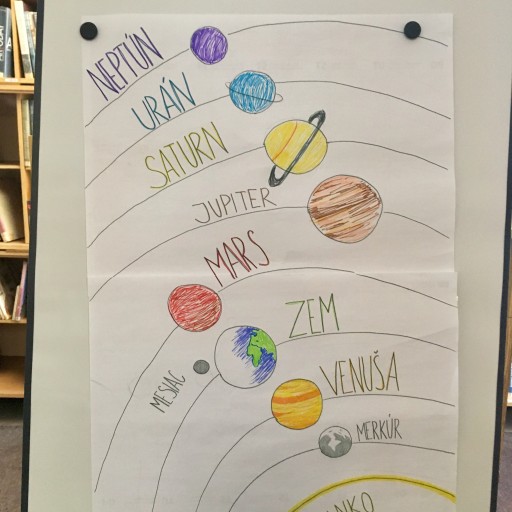 NEPTÚN
URÁN
SATURN
JUPITER
MARS
ZEM
MESIAC
VENUŠA
MERKÚR